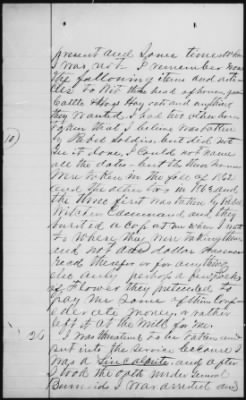 present and Some times when
I was not I remember some
the following items and arti
cles to wit three head of horses, your
Cattle & Hogs Hay oats and anything
they wanted I had two other horses
taken that I believe was taken
by the Rebel Soldiers but did not
see it done, I could not name
all the dates but the three horses
were taken in the fall of 1862
and the other two in 1863 and
the three first was taken by
Command and they
carried a cop at me when I went
to where they was taking them
and not one dollar have I ever
received therefor or for anything
else only perhaps a few sacks
of flower they pretended to
pay me some of them Conf
ederate money, or rather
left it at the mill for me.
I was threatened to be taken and
put into the service because I
was a Lincolnite and after
I took the oath under General
Burnside I was arrested and
10
26